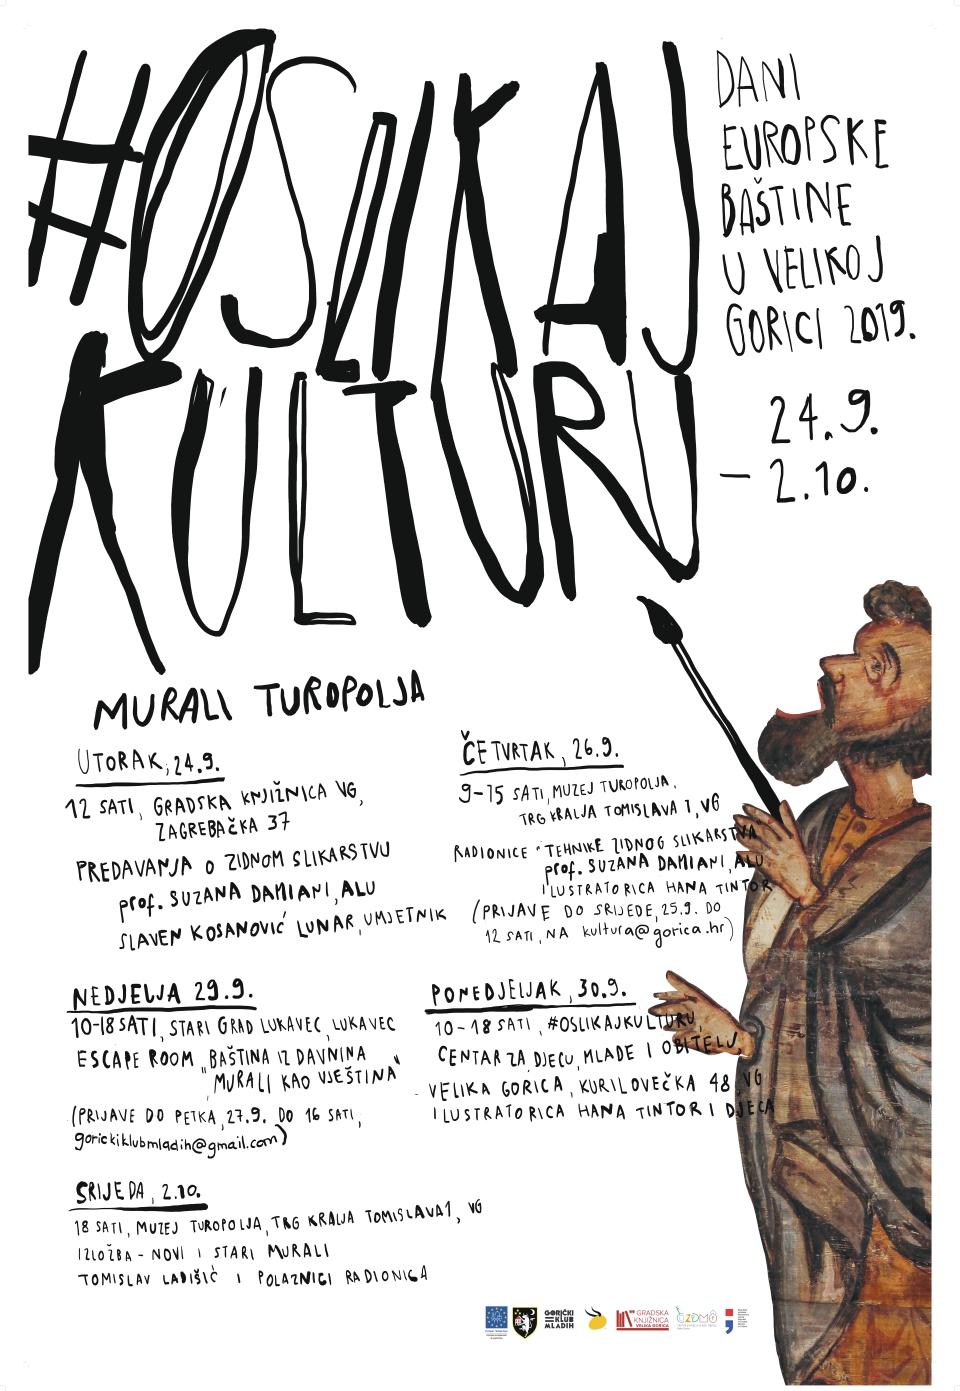 #OSLIKAJ
KULTURU
DANI
EUROPSKE
BAŠTINE
U VELIKOJ
GORICI 2019.
24.9.
- 2.10.
MURALI TUROPOLJA
UTORAK, 24.9.
12 SATI, GRADSKA KNJIŽNICA VG,
ZAGREBAČKA 37
PREDAVANJA O ZIDNOM SLIKARSTVU
prof. SUZANA DAMIANI, ALU
SLAVEN KOSANOVIĆ LUNAR, UMJETNIK
ČETVRTAK, 26.9.
9-15 SATI, MUZEJ TUROPOLJA,
TRG KRALJA TOMISLAVA 1, VG
RADIONICE "TEHNIKE ZIDNOG SLIKARSTVA"
prof. SUZANA DAMIANI, ALU
ILUSTRATORICA HANA TINTOR
(PRIJAVE DO SRIJEDE, 25.9. DO
12 SATI, NA kultura@gorica.hr)
NEDJELJA 29.9.
10-18 SATI, STARI GRAD LUKAVEC, LUKAVEC
ESCAPE ROOM „BAŠTINA IZ DAVNINA
MURALI KAO VJEŠTINA"
(PRIJAVE DO PETKA, 27.9. DO 16 SATI,
gorickiklubmladih@gmail.com)
PONEDJELJAK, 30.9.
10-18 SATI, #OSLIKAJKULTURU,
CENTAR ZA DJECU, MLADE I OBITELJ,
VELIKA GORICA, KURILOVEČKA 48, VG
ILUSTRATORICA HANA TINTOR I DJECA
SRIJEDA, 2.10.
18 SATI, MUZEJ TUROPOLJA, TRG KRALJA TOMISLAVA 1, VG
IZLOŽBA - NOVI I STARI MURALI
TOMISLAV LADIŠIĆ I POLAZNICI RADIONICA
GORIČKI
KLUB
MLADIH
GRADSKA
KNJIŽNICA
VELIKA GORICA